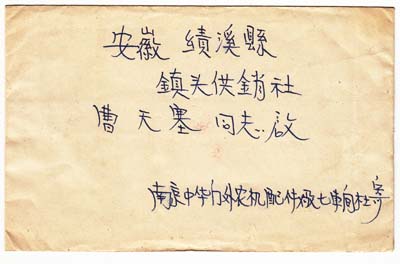 安徽 绩溪縣
鎮头供銷社
曹天塞 同志.啟
南京中华门外农机配件厂七车间杜寄